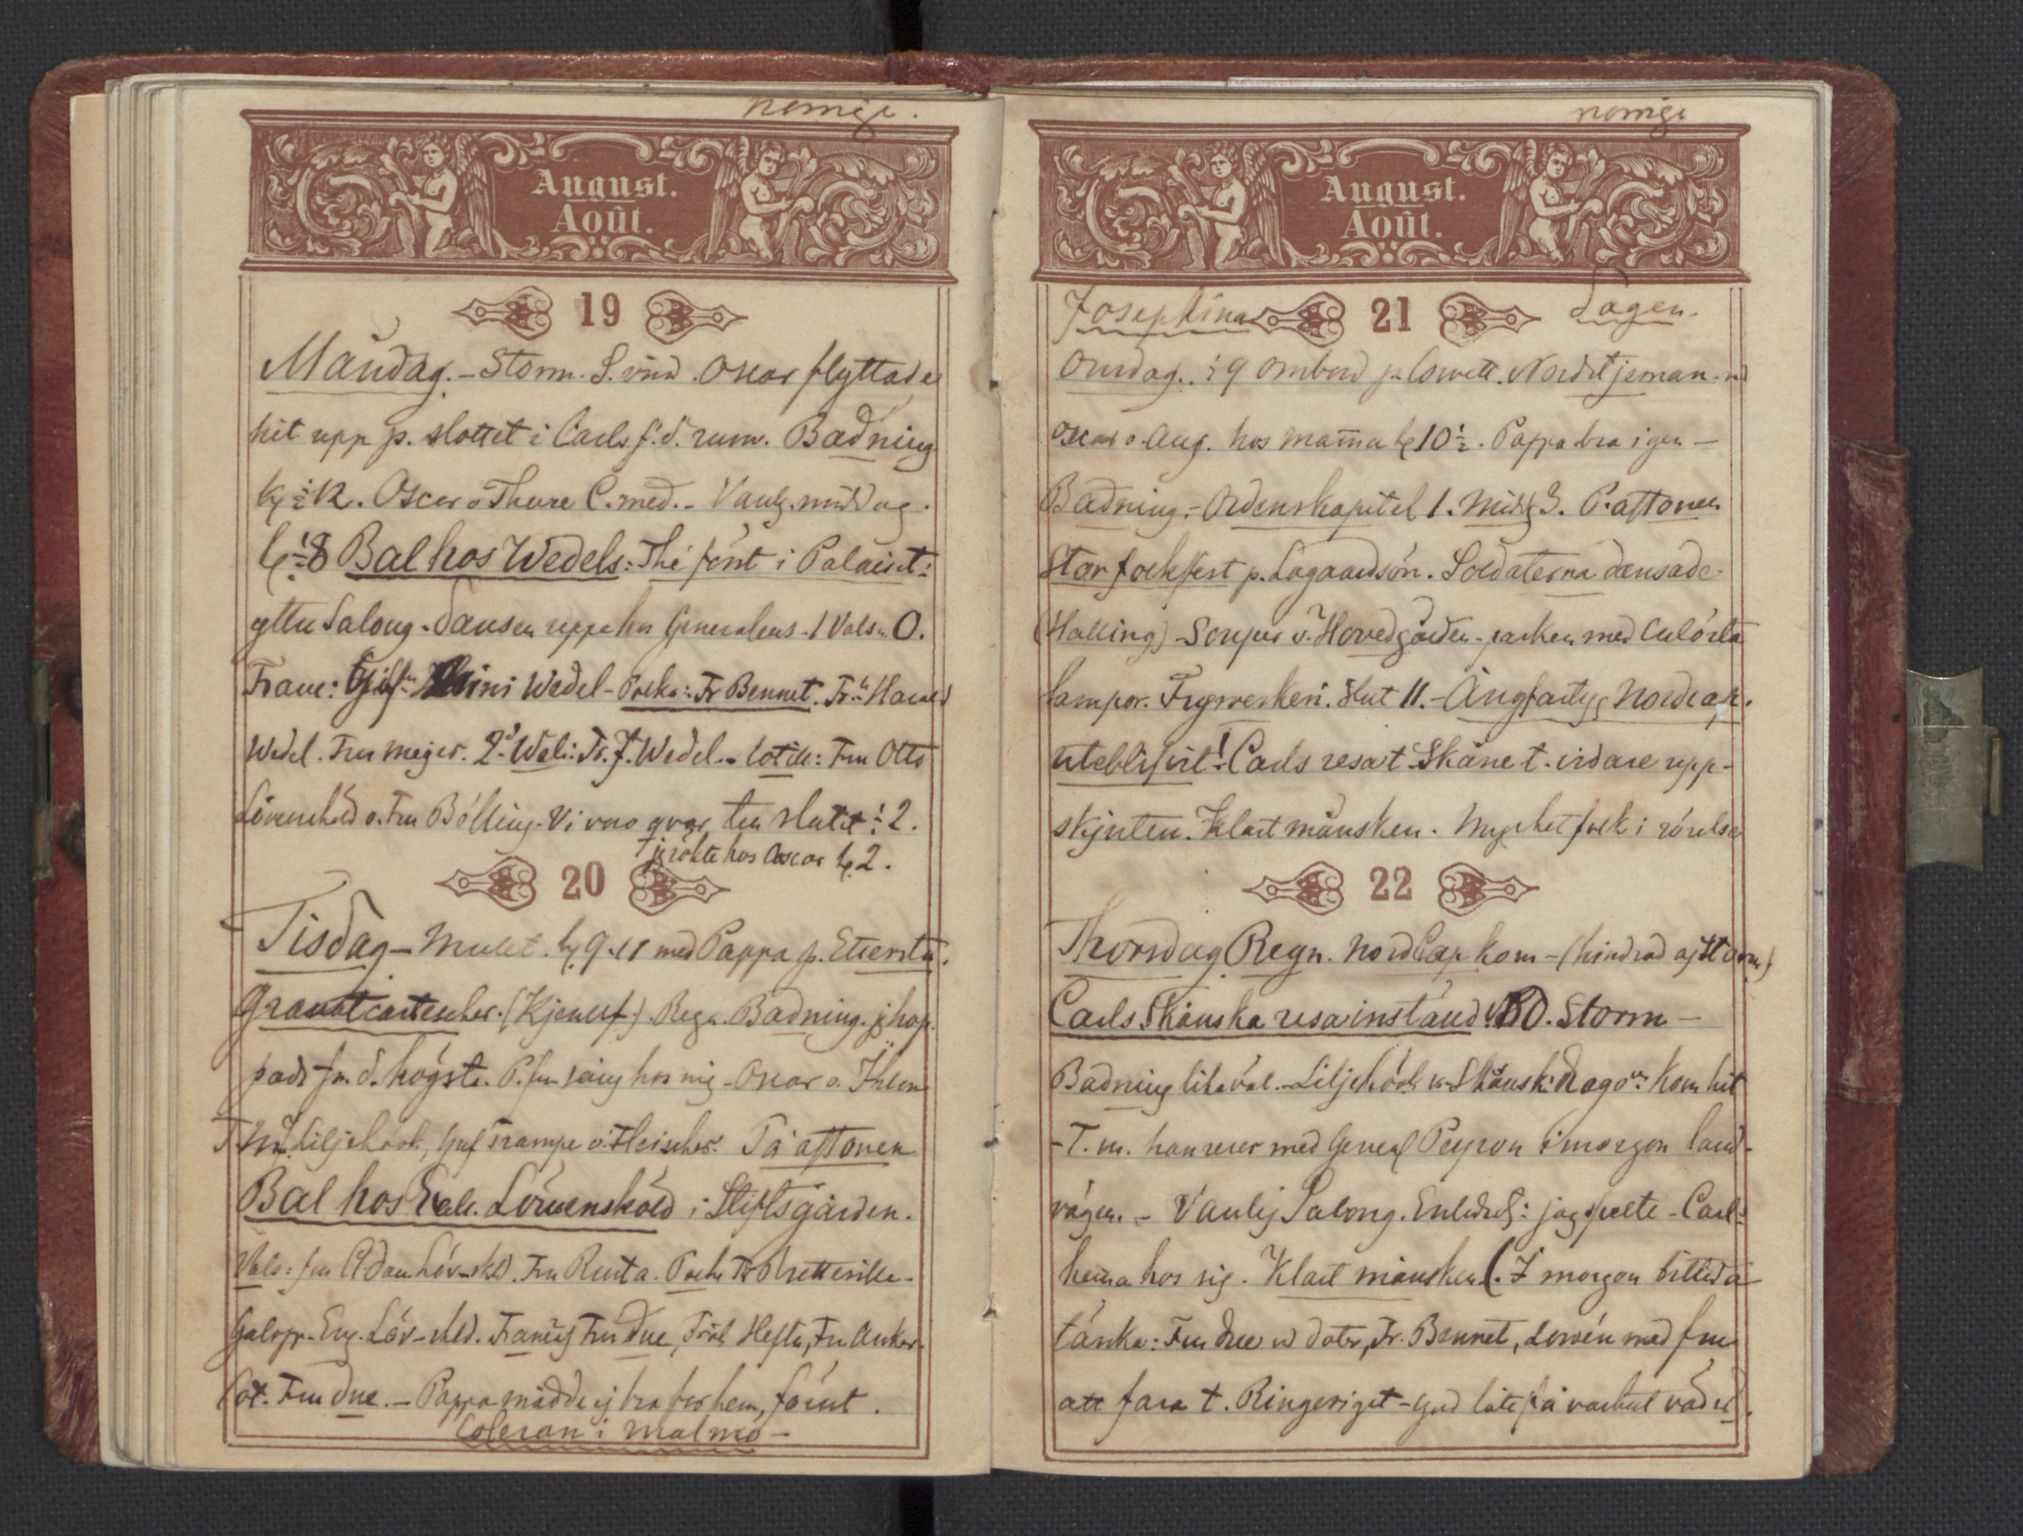 norrige.
August.
Août.
19
Måndag. - Storm. S. vind. Oscar flyttade
hit upp p. slottet i Carls f. d. rum. Badning
½ 12. Oscar o Thure C. med. - Vanlig middag.
½ 8 Bal hos Wedels: Thé först i Palaiset:
yttre Salong. Dansen uppe hos Generalens. 1 Vals: O.
Frans: Mini Wedel - Polka: Fr Bennet. Fr. Harald
Wedel. Fru Meyer. 2. Vals: Fr. J. Wedel - Cotill: Fru Otto
Lövenskiold o. Fru Bölling. Vi voro qvar till slutet ½ 2.
jag rökte hos Oscar kl 2.
20
Tisdag - Mulet. kl 9-11 med Pappa p. Etterstad.
Granatcartescher. (Kjerulf.) Regn. Badning. jag hop-
pade fr. d. högsta. P. fru sång hos mig - Oscar o. Thure
Liljehöök, Gref Trampe o. Fleischer. På aftonen
Bal hos Exell. Lövenskiöld i Stiftsgården.
Vals: fru Løv-skld. Fru Rusta. Polka Bretteville.
Galopp. Eug. Löv-skld. Française Fru Due, Fröl Heftye, Fr Anker.
Cot. Fru Due. - Pappa mådde ej bra for hem, förut.
Coleran i Malmö -
norrige
August.
Août.
Josephina
21
Dagen.
Onsdag. ½ 9 ombord p. Corvett. Nordstjernan
Oscar o. Aug. hos Mamma kl 10 ½. Pappa bra igen -
Badning. - Ordenskapitel 1. Midd 3. P. aftonen
Stor folkfest p. Ladegaardsön. Soldaterna dansade
(Halling) - Souper v. Hovedgården - parken med culörta
lampor. Fyrverkeri. Slut 11. - Ångfartyg Nordcap.
uteblifvit! Carls resa t. Skåne t. vidare upp-
skjuten. Klart månsken. Mycket folk i rörelse
22
Thorsdag Regn. Nord Cap kom - (hindrad af storm)
Carls Skånska resa inställd. O. Storm -
Badning likaväl. - Liljehöök v. Skånsk: Drago: Kom hit
- T. m. han reser med General Peyron i morgon land-
vägen. - Vanlig Salong. Enlidet: jag spelte - Carl
hema hos sig. Klart månsken (. I morgon bittida
tänka: Fru Due o dotr, Fr. Bennet, Lowén med fru
att fara t. Ringeriget - Gud låte få vackert väder.